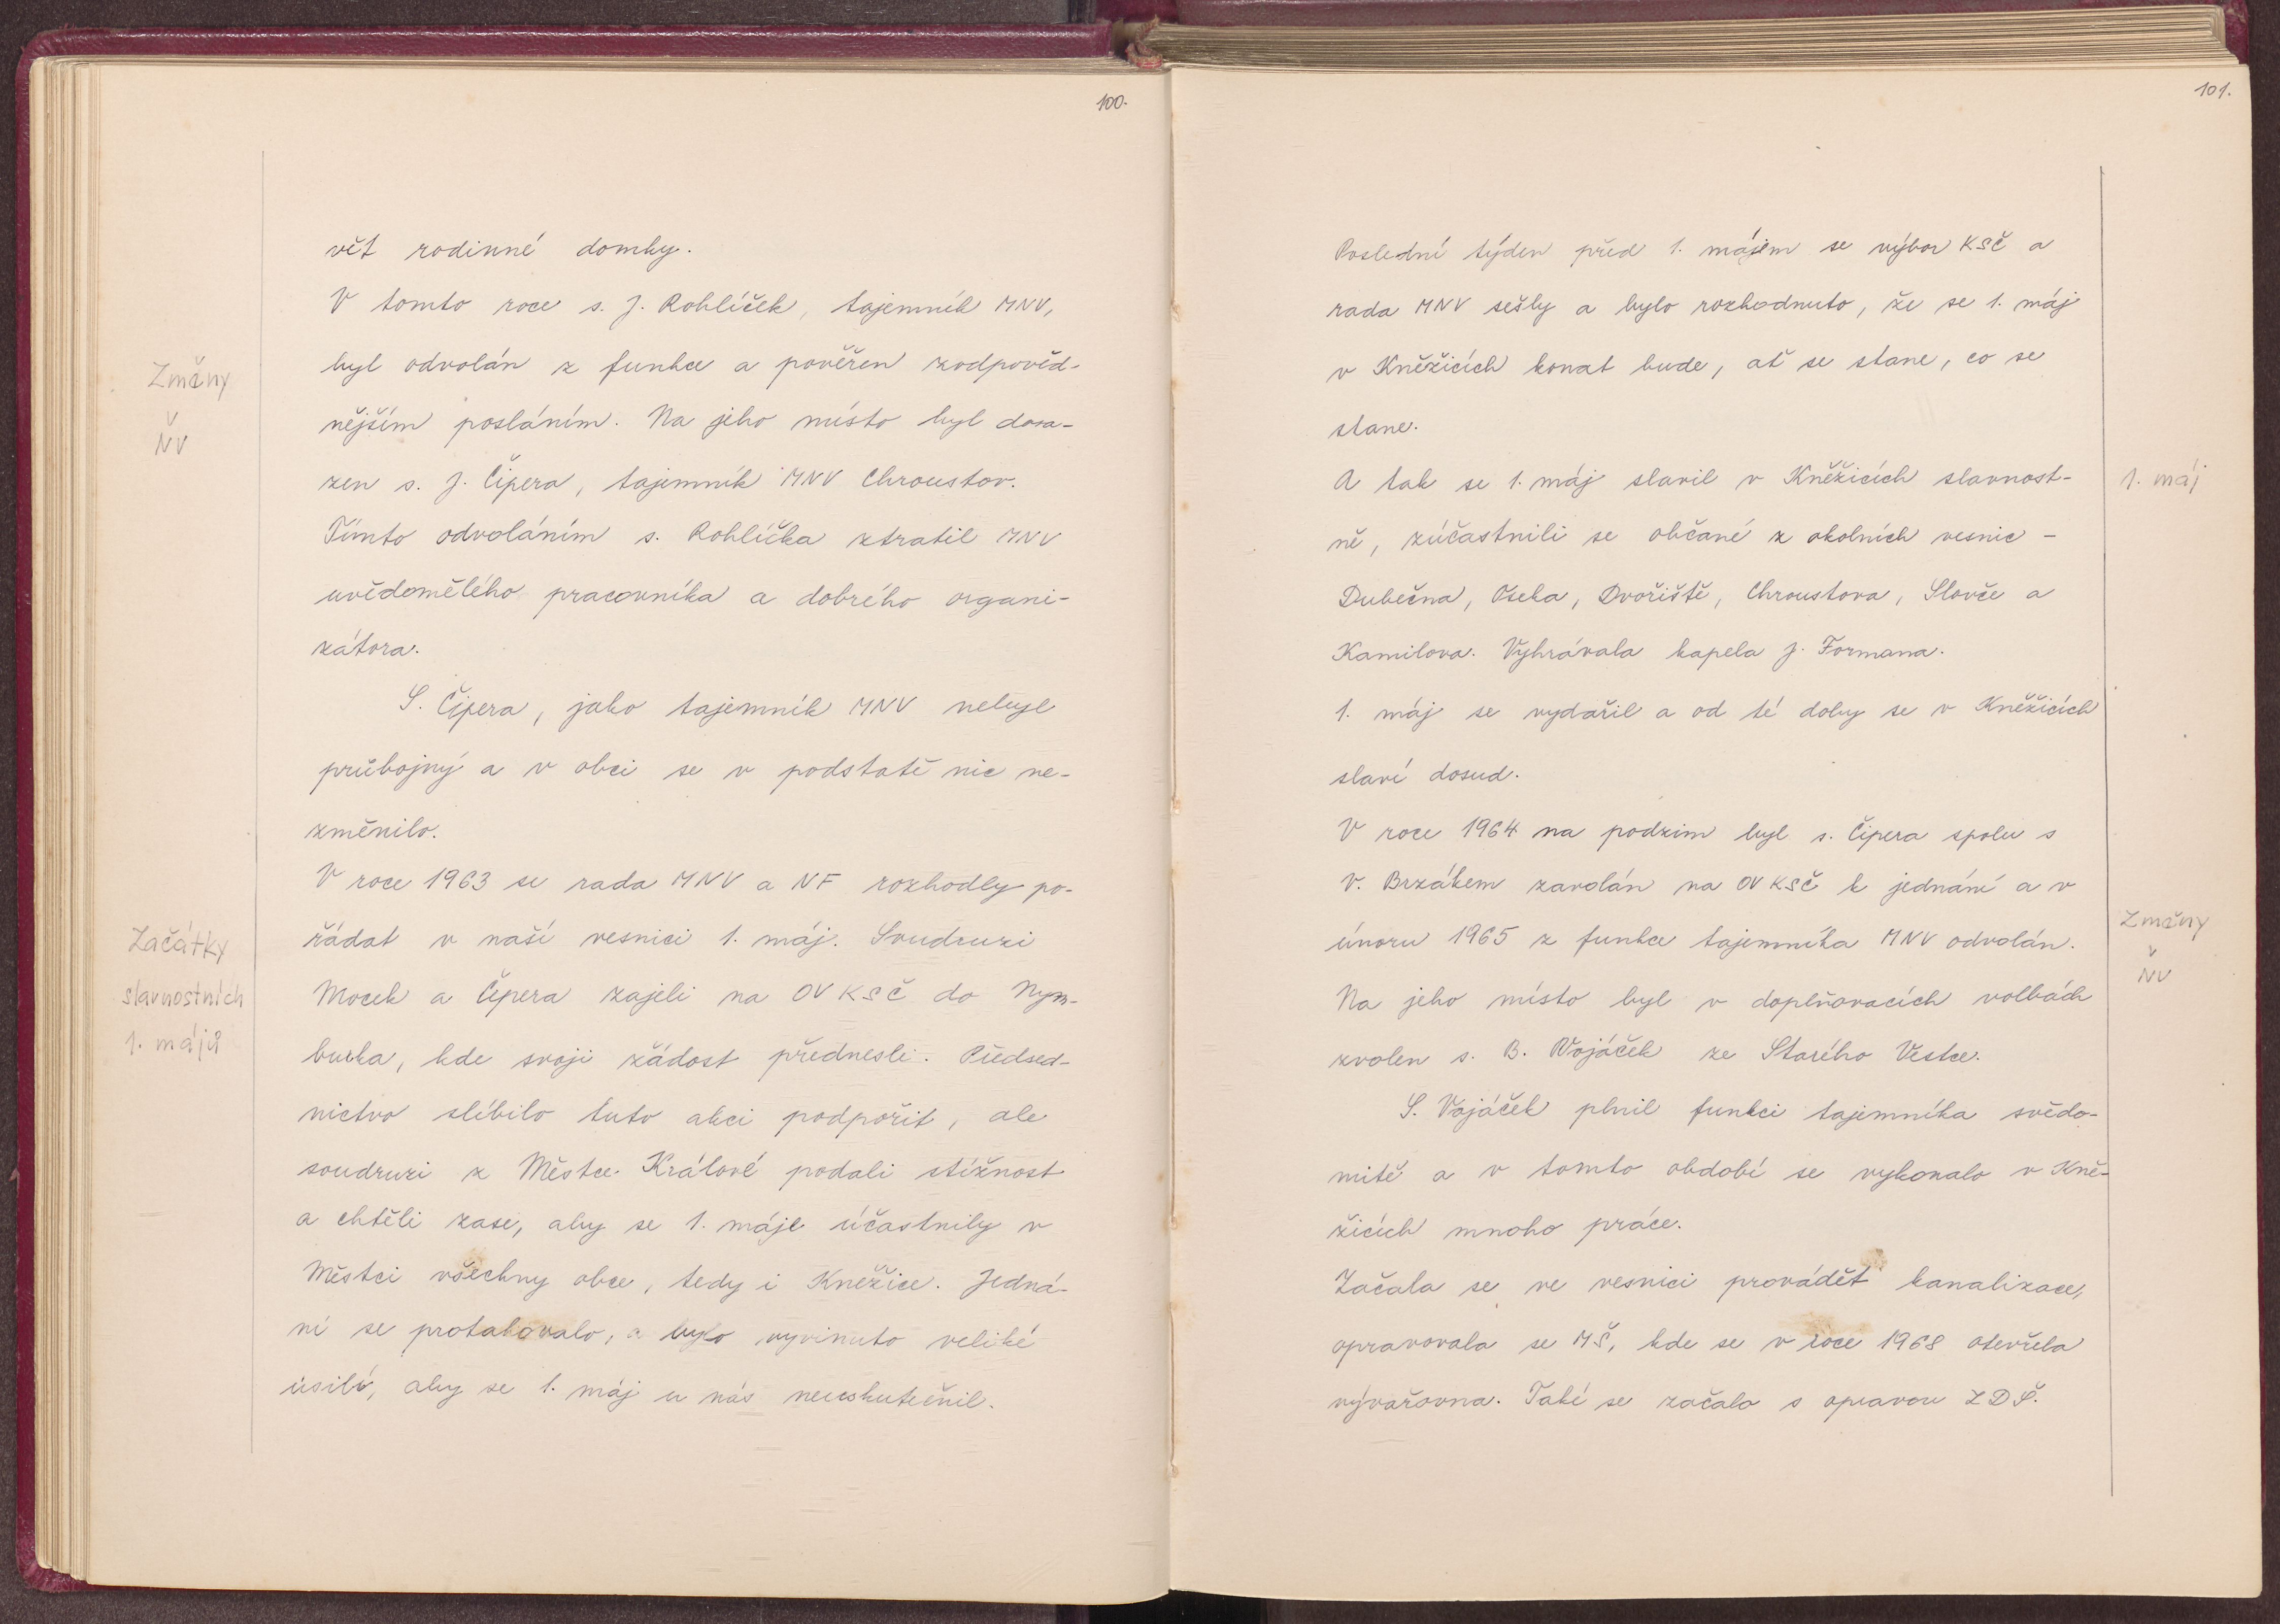 100.
vět rodinné domky.
V tomto roce s. J. Rohlíček, tajemník MNV,
byl odvolán z funkce a pověřen zodpověd-
nějším posláním. Na jeho místo byl dosa-
zen s. J. Čipera, tajemník MNV Chroustov.
Tímto odvoláním s. Rohlíčka ztratil MNV
uvědomělého pracovníka a dobrého organi-
zátora.
S. Čipera, jako tajemník MNV nebyl
průbojný a v obci se v podstatě nic ne-
změnilo.
V roce 1963 se rada MNV a NF rozhodly po-
řádat v naší vesnici 1. máj. Soudruzi
Mocek a Čipera zajeli na OV KSČ do Nym-
burka, kde svoji žádost přednesli. Předsed-
nictvo slíbilo tuto akci podpořit, ale
soudruzi z Městce Králové podali stížnost
a chtěli zase, aby se 1. máje účastnily v
Městci všechny obce, tedy i Kněžice. Jedná-
ní se protahovalo, a bylo vyvinuto veliké
úsilí, aby se 1. máj u nás neuskutečnil.
Změny
v
NV
Začátky
slavnostních
1. májů
101.
Poslední týden před 1. májem se výbor KSČ a
rada MNV sešly a bylo rozhodnuto, že se 1. máj
v Kněžicích konat bude, ať se stane, co se
stane.
A tak se 1. máj slavil v Kněžicích slavnost-
ně, zúčastnili se občané z okolních vesnic -
Dubečna, Oseka, Dvořiště, Chroustova, Slovče a
Kamilova. Vyhrávala kapela J. Formana.
1. máj se vydařil a od té doby se v Kněžicích
slaví dosud.
V roce 1964 na podzim byl s. Čipera spolu s
V. Brzákem zavolán na OV KSČ k jednání a v
únoru 1965 z funkce tajemníka MNV odvolán.
Na jeho místo byl v doplňovacích volbách
zvolen s. B. Vojáček ze Starého Vestce.
S. Vojáček plnil funkci tajemníka svědo-
mitě a v tomto období se vykonalo v Kně-
žicích mnoho práce.
Začala se ve vesnici provádět kanalizace,
opravovala se MŠ, kde se v roce 1968 otevřela
vývařovna. Také se začalo s opravou ZDŠ.
1. máj
Změny
v
NV